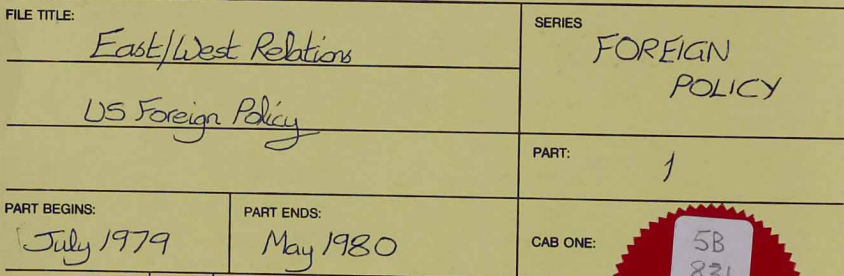 FILE TITLE:
East/West Relations
US Foreign Policy
SERIES
FOREIGN
POLICY
PART:
1
PART BEGINS:
July 1979
PART ENDS:
May 1980
CAB ONE:
5B
831